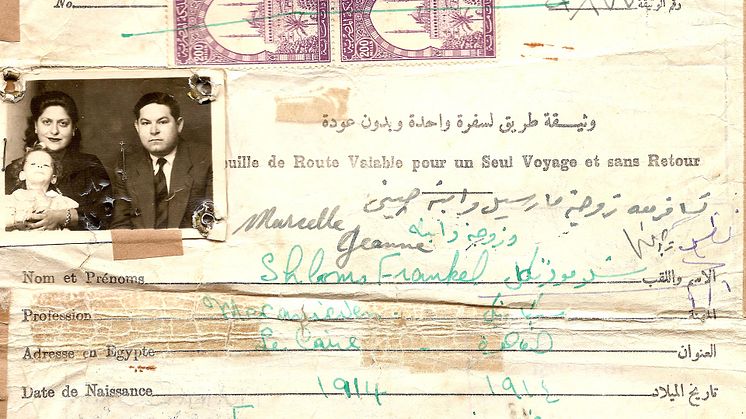 No.
رقم الوثيقة
200 200
وثيقة طريق لسفرة واحدة وبدون عودة
euille de Route Valable pour un Seul Voyage et sans Retour
تسافر معه زوجة مارسيل وابنة چينى
Marcelle
Jeanne
وزوجة وابنه
Nom et Prénoms Shlomo Frankel الاسم واللقب
Profession Mecanicien المهنة
Adresse en Egypte Le Caire القاهرة العنوان
Date de Naissance 1914 ١٩١٤ تاريخ الميلاد